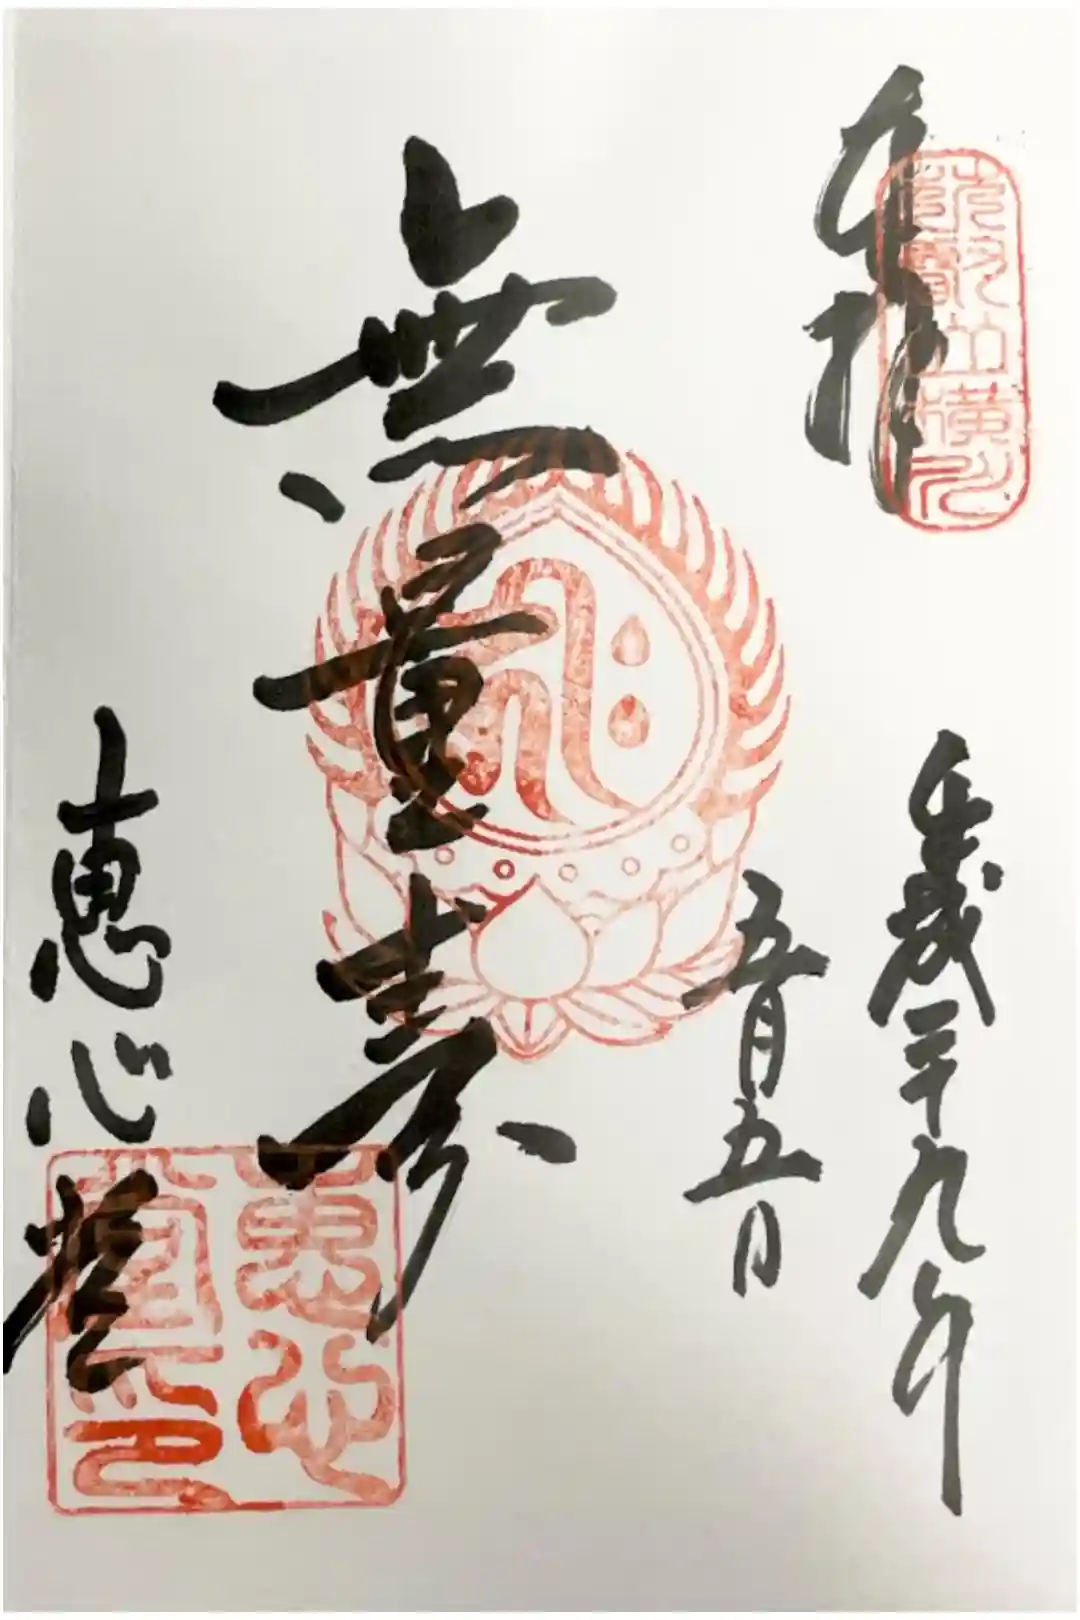 奉拝
平成二十九年
五月五日
無量寿
恵心堂
比叡山横川
恵心堂印